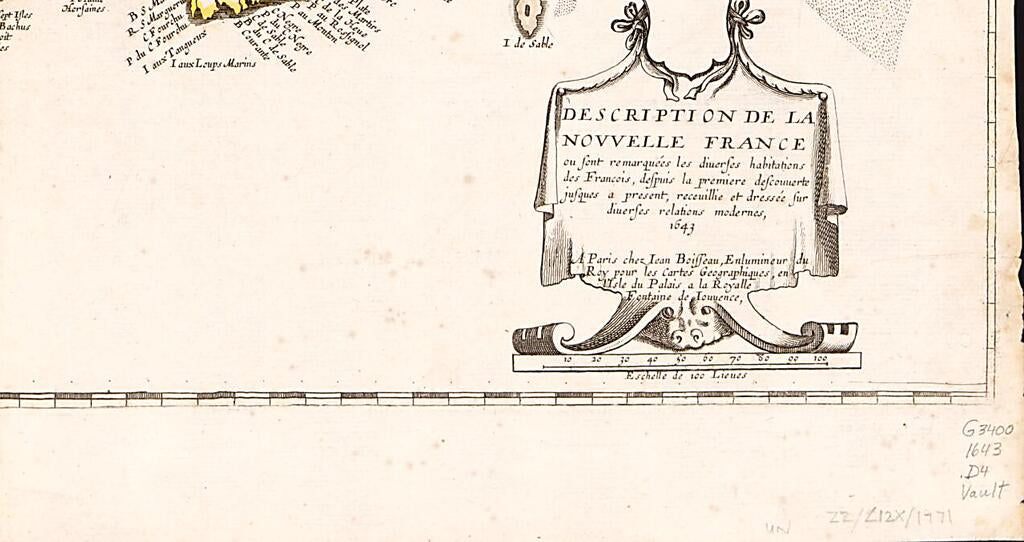 Sept Isles
Bachus
Horfaines
R. S Marguerite
C Fourchu
P du C Fourchu
I aux Tangueux
I aux Loups Marins
B Courante
C de Sable
I de Sable
DESCRIPTION DE LA
NOVVELLE FRANCE
ou ſont remarquées les diuerſes habitations
des Francois, deſpuis la premiere deſcouuerte
juſques a present, receuillie et dressée ſur
diuerſes relations modernes,
1643
A Paris chez Iean Boiſſeau, Enlumineur du
Roy pour les Cartes Geographiques, en
l'Isle du Palais a la Royalle
Fontaine de Iouvence,
10 20 30 40 50 60 70 80 90 100
Eschelle de 100 Lieues
G3400
1643
.D4
Vault